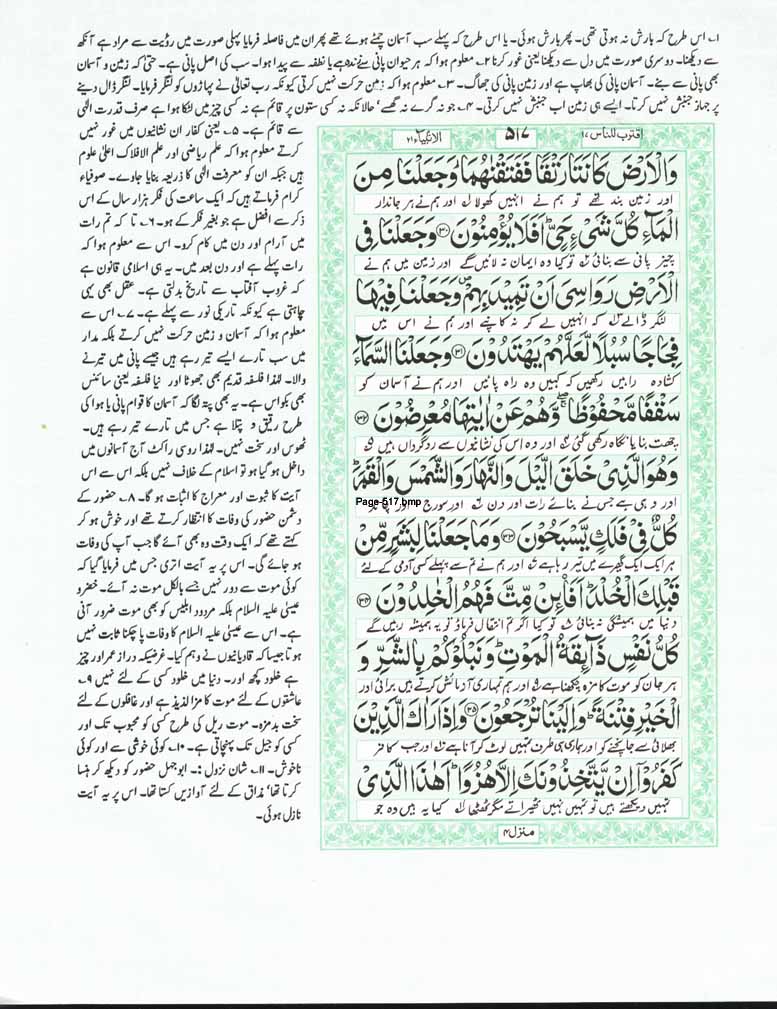 ۱؎ اس طرح کہ بارش نہ ہوتی تھی۔ پھر بارش ہوئی۔ یا اس طرح کہ پہلے سب آسمان چمٹے ہوئے تھے پھر ان میں فاصلہ فرمایا پہلی صورت میں رؤیت سے مراد ہے آنکھ
سے دیکھنا۔ دوسری صورت میں دل سے دیکھنا یعنی غور کرنا ۲؎ معلوم ہوا کہ ہر حیوان پانی نے زندہ ہے یا نطفہ سے پیدا ہوا۔ سب کی اصل پانی ہے۔ حتیٰ کہ زمین و آسمان
بھی پانی سے بنے۔ آسمان پانی کی بھاپ ہے اور زمین پانی کی جھاگ۔ ۳؎ معلوم ہوا کہ زمین حرکت نہیں کرتی کیونکہ رب تعالیٰ نے پہاڑوں کو لنگر فرمایا۔ لنگر ڈال دینے
پر جہاز جنبش نہیں کرتا۔ ایسے ہی زمین اب جنبش نہیں کرتی۔ ۴؎ جو نہ گرے نہ گھسے' حالانکہ نہ کسی ستون پر قائم ہے نہ کسی چیز میں لٹکا ہوا ہے صرف قدرت الٰہی
سے قائم ہے۔ ۵؎ یعنی کفار ان نشانیوں میں غور نہیں
کرتے معلوم ہوا کہ علم ریاضی اور علم الافلاک اعلیٰ علوم
ہیں جبکہ ان کو معرفت الٰہی کا ذریعہ بنایا جاوے۔ صوفیاء
کرام فرماتے ہیں کہ ایک ساعت کی فکر ہزار سال کے اس
ذکر سے افضل ہے جو بغیر فکر کے ہو۔ ۶؎ تا کہ تم رات
میں آرام اور دن میں کام کرو۔ اس سے معلوم ہوا کہ
رات پہلے ہے اور دن بعد میں۔ یہ ہی اسلامی قانون ہے
کہ غروب آفتاب سے تاریخ بدلتی ہے۔ عقل بھی یہی
چاہتی ہے کیونکہ تاریکی نور سے پہلے ہے۔ ۷؎ اس سے
معلوم ہوا کہ آسمان و زمین حرکت نہیں کرتے بلکہ مدار
میں سب تارے ایسے تیر رہے ہیں جیسے پانی میں تیرنے
والا۔ لہٰذا فلسفہ قدیم بھی جھوٹا اور نیا فلسفہ یعنی سائنس
بھی بکواس ہے۔ یہ بھی پتہ لگا کہ آسمان کا قوام پانی یا ہوا کی
طرح رقیق و پتلا ہے جس میں تارے تیر رہے ہیں۔
ٹھوس اور سخت نہیں۔ لہٰذا روسی راکٹ آج آسمانوں میں
داخل ہو گیا ہو تو اسلام کے خلاف نہیں بلکہ اس سے اس
آیت کا ثبوت اور معراج کا اثبات ہو گا۔ ۸؎ حضور کے
دشمن حضور کی وفات کا انتظار کرتے تھے اور خوش ہو کر
کہتے تھے کہ ایک وقت وہ بھی آئے گا جب آپ کی وفات
ہو جائے گی۔ اس پر یہ آیت اتری جس میں فرمایا گیا کہ
کوئی موت سے دور نہیں جسے بالکل موت نہ آئے۔ خضر و
عیسیٰ علیہ السلام بلکہ مردود ابلیس کو بھی موت ضرور آنی
ہے۔ اس سے عیسیٰ علیہ السلام کا وفات پا چکنا ثابت نہیں
ہوتا جیسا کہ قادیانیوں نے وہم کیا۔ غرضیکہ دراز عمر اور چیز
ہے خلود کچھ اور۔ دنیا میں خلود کسی کے لئے نہیں ۹؎
عاشقوں کے لئے موت کا مزا لذیذ ہے اور غافلوں کے لئے
سخت بدمزہ۔ موت ریل کی طرح کسی کو محبوب تک اور
کسی کو جیل تک پہنچاتی ہے۔ ۱۰؎ کوئی خوشی سے اور کوئی
ناخوش۔ ۱۱؎ شان نزول :۔ ابوجہل حضور کو دیکھ کر ہنسا
کرتا تھا' مذاق کے لئے آوازیں کستا تھا۔ اس پر یہ آیت
نازل ہوئی۔
اقترب للناس ۱۷
۵۱۷
الانبیاء ۲۱
وَالْاَرْضَ كَانَتَا رَتْقًا فَفَتَقْنٰهُمَا ؕ وَجَعَلْنَا مِنَ
اور زمین بند تھے تو ہم نے انہیں کھولا ۱؎ اور ہم نے ہر جاندار
الْمَآءِ كُلَّ شَیْءٍ حَیٍّ ؕ اَفَلَا یُؤْمِنُوْنَ ﴿۳۰﴾ وَجَعَلْنَا فِی
چیز پانی سے بنائی ۲؎ تو کیا وہ ایمان نہ لائیں گے اور زمین میں ہم نے
الْاَرْضِ رَوَاسِیَ اَنْ تَمِیْدَ بِهِمْ ۪ وَجَعَلْنَا فِیْهَا
لنگر ڈالے ۳؎ کہ انہیں لے کر نہ کانپے اور ہم نے اس میں
فِجَاجًا سُبُلًا لَّعَلَّهُمْ یَهْتَدُوْنَ ﴿۳۱﴾ وَجَعَلْنَا السَّمَآءَ
کشادہ راہیں رکھیں کہ کہیں وہ راہ پائیں اور ہم نے آسمان کو
سَقْفًا مَّحْفُوْظًا ۖۚ وَّهُمْ عَنْ اٰیٰتِهَا مُعْرِضُوْنَ ﴿۳۲﴾
چھت بنایا نگاہ رکھی گئی ۴؎ اور وہ اس کی نشانیوں سے روگرداں ہیں ۵؎
وَهُوَ الَّذِیْ خَلَقَ الَّیْلَ وَالنَّهَارَ وَالشَّمْسَ وَالْقَمَرَ ؕ
اور وہی ہے جس نے بنائے رات اور دن ۶؎ اور سورج اور چاند
Page-517.bmp
كُلٌّ فِیْ فَلَكٍ یَّسْبَحُوْنَ ﴿۳۳﴾ وَمَا جَعَلْنَا لِبَشَرٍ مِّنْ
ہر ایک ایک گھیرے میں تیر رہا ہے ۷؎ اور ہم نے تم سے پہلے کسی آدمی کے لئے
قَبْلِكَ الْخُلْدَ ؕ اَفَا۠ئِنْ مِّتَّ فَهُمُ الْخٰلِدُوْنَ ﴿۳۴﴾
دنیا میں ہمیشگی نہ بنائی ۸؎ تو کیا اگر تم انتقال فرماؤ تو یہ ہمیشہ رہیں گے
كُلُّ نَفْسٍ ذَآئِقَةُ الْمَوْتِ ؕ وَنَبْلُوْكُمْ بِالشَّرِّ وَ
ہر جان کو موت کا مزہ چکھنا ہے ۹؎ اور ہم تمہاری آزمائش کرتے ہیں برائی اور
الْخَیْرِ فِتْنَةً ؕ وَاِلَیْنَا تُرْجَعُوْنَ ﴿۳۵﴾ وَاِذَا رَاٰكَ الَّذِیْنَ
بھلائی سے جانچنے کو اور ہماری ہی طرف تمہیں لوٹ کر آنا ہے ۱۰؎ اور جب کافر
كَفَرُوْۤا اِنْ یَّتَّخِذُوْنَكَ اِلَّا هُزُوًا ؕ اَهٰذَا الَّذِیْ
تمہیں دیکھتے ہیں تو تمہیں نہیں ٹھہراتے مگر ٹھٹھا ۱۱؎ کیا یہ ہیں وہ جو
منزل ۴